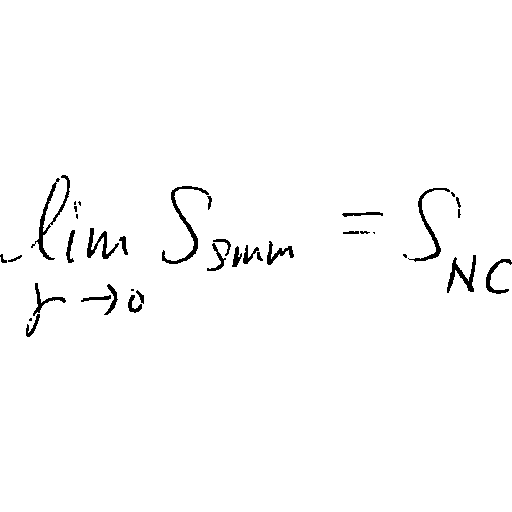 \lim_{r \to 0} S_{smm} = S_{NC}